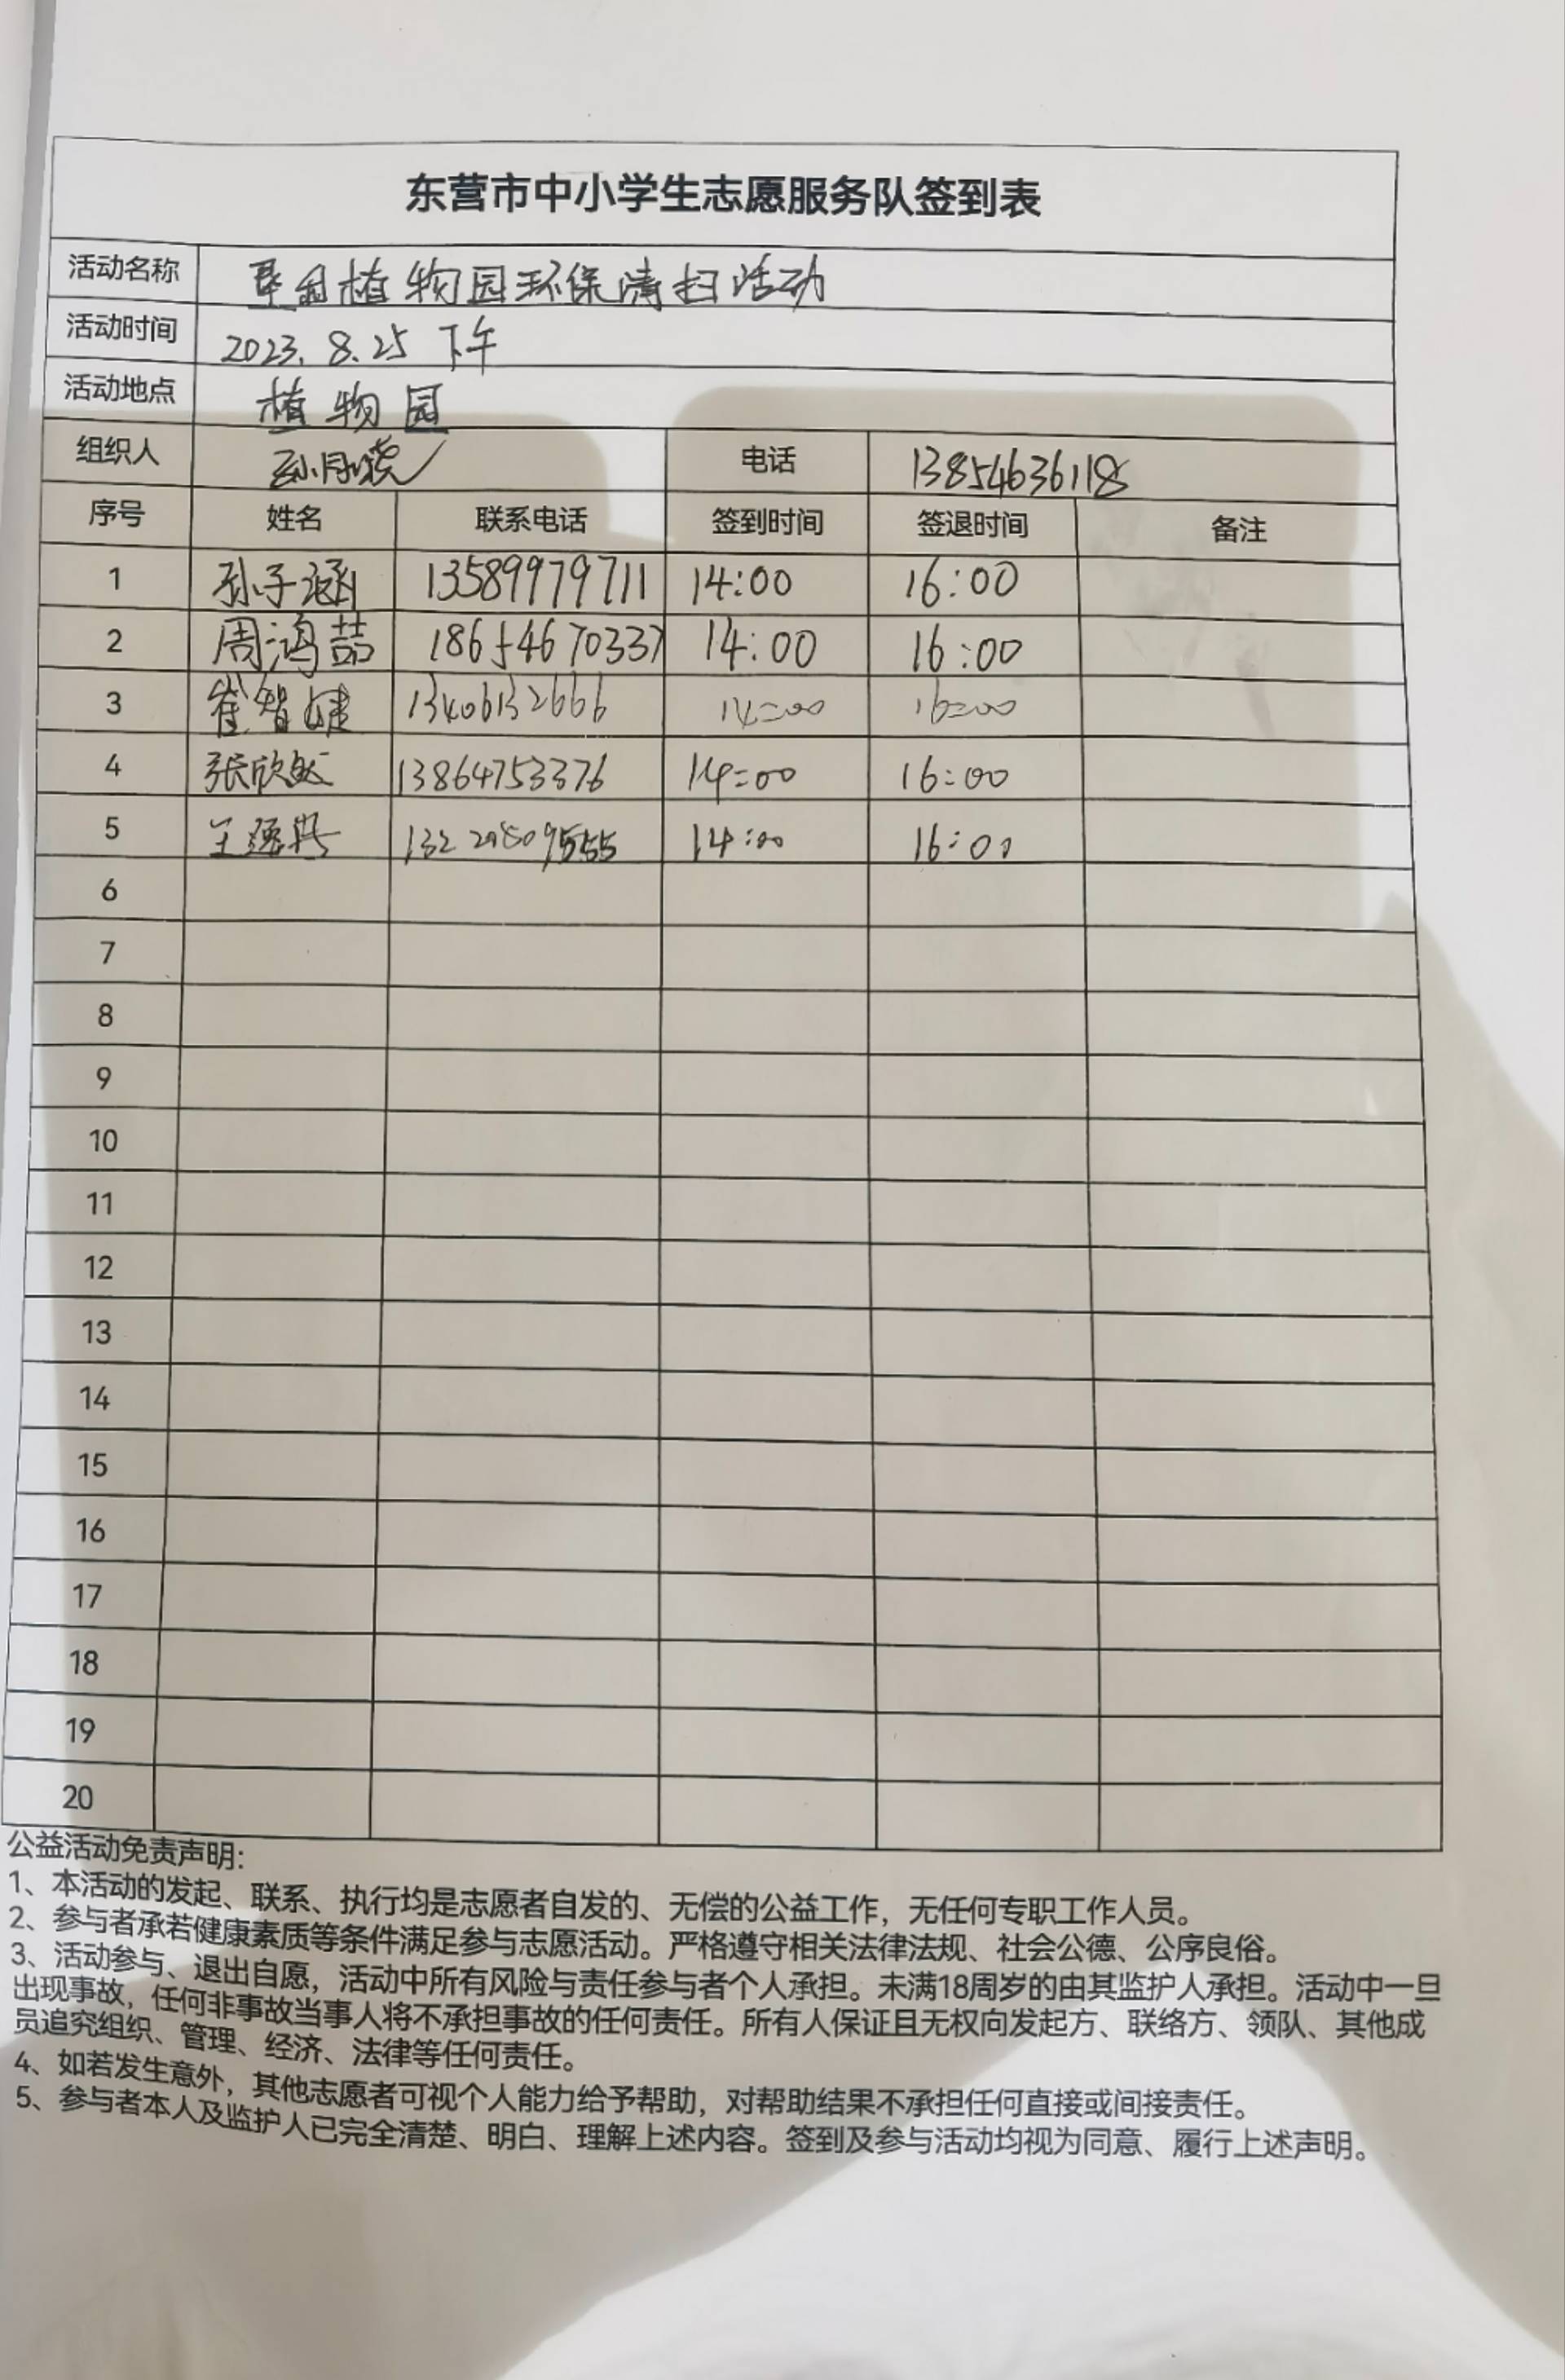 东营市中小学生志愿服务队签到表
活动名称 垦利植物园环保清扫活动
活动时间 2023.8.25 下午
活动地点 植物园
组织人 孙月 电话 13854636118
序号 姓名 联系电话 签到时间 签退时间 备注
1 孙子涵 13589979711 14:00 16:00
2 周鸿喆 18654670337 14:00 16:00
3 崔智健 13406132666 14:00 16:00
4 张欣 13864753376 14:00 16:00
5 王 14:00 16:00
6
7
8
9
10
11
12
13
14
15
16
17
18
19
20
公益活动免责声明:
1、本活动的发起、联系、执行均是志愿者自发的、无偿的公益工作，无任何专职工作人员。
2、参与者承若健康素质等条件满足参与志愿活动。严格遵守相关法律法规、社会公德、公序良俗。
3、活动参与、退出自愿，活动中所有风险与责任参与者个人承担。未满18周岁的由其监护人承担。活动中一旦
出现事故，任何非事故当事人将不承担事故的任何责任。所有人保证且无权向发起方、联络方、领队、其他成
员追究组织、管理、经济、法律等任何责任。
4、如若发生意外，其他志愿者可视个人能力给予帮助，对帮助结果不承担任何直接或间接责任。
5、参与者本人及监护人已完全清楚、明白、理解上述内容。签到及参与活动均视为同意、履行上述声明。